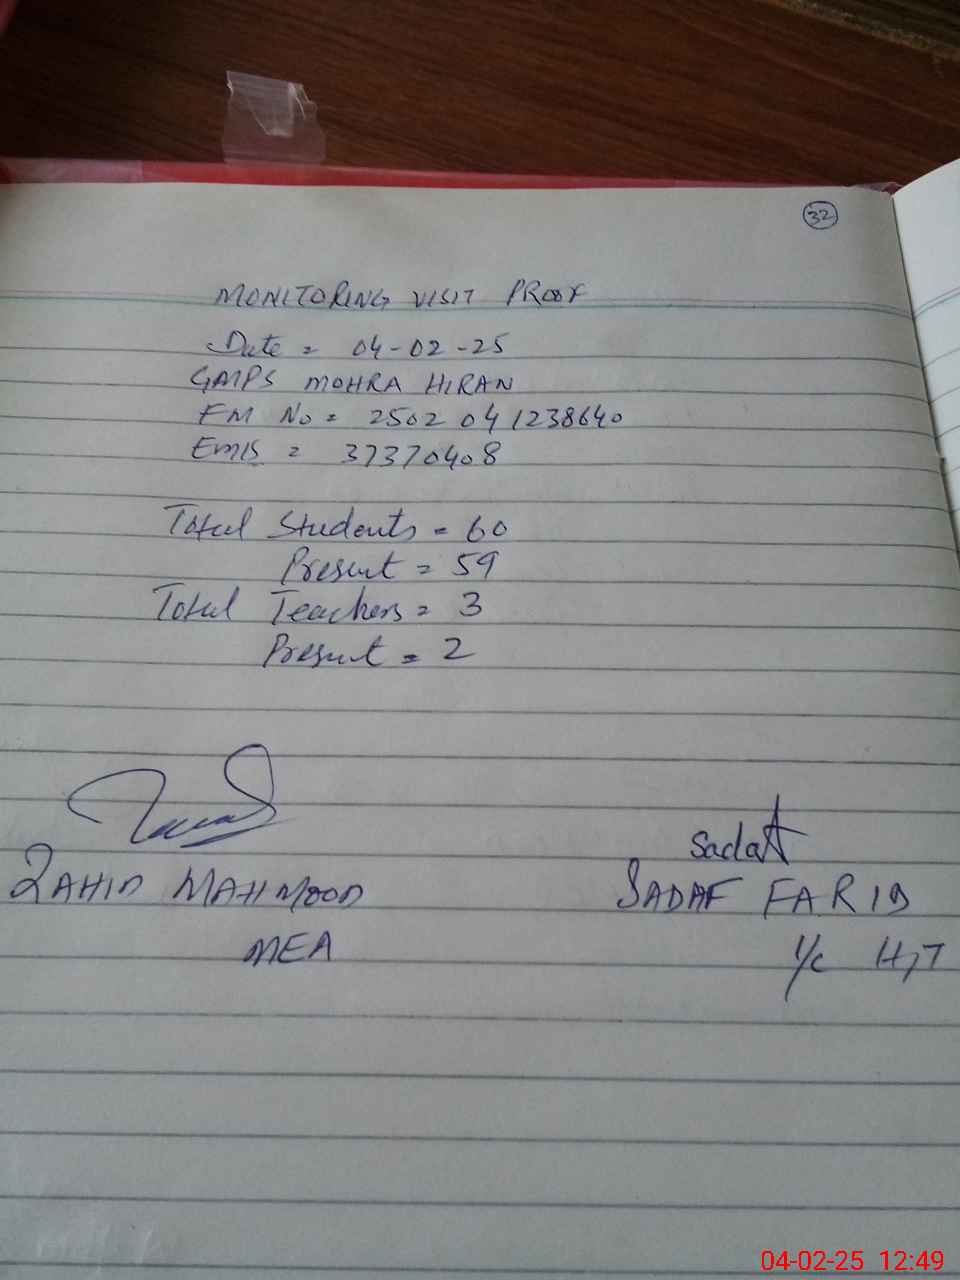 32
MONITORING VISIT PROOF
Date = 04-02-25
GMPS MOHRA HIRAN
FM No = 2502041238640
EMIS = 37370408
Total Students = 60
Present = 59
Total Teachers = 3
Present = 2
Sadaf
ZAHID MAHMOOD
SADAF FARID
MEA
I/c H,T
04-02-25 12:49